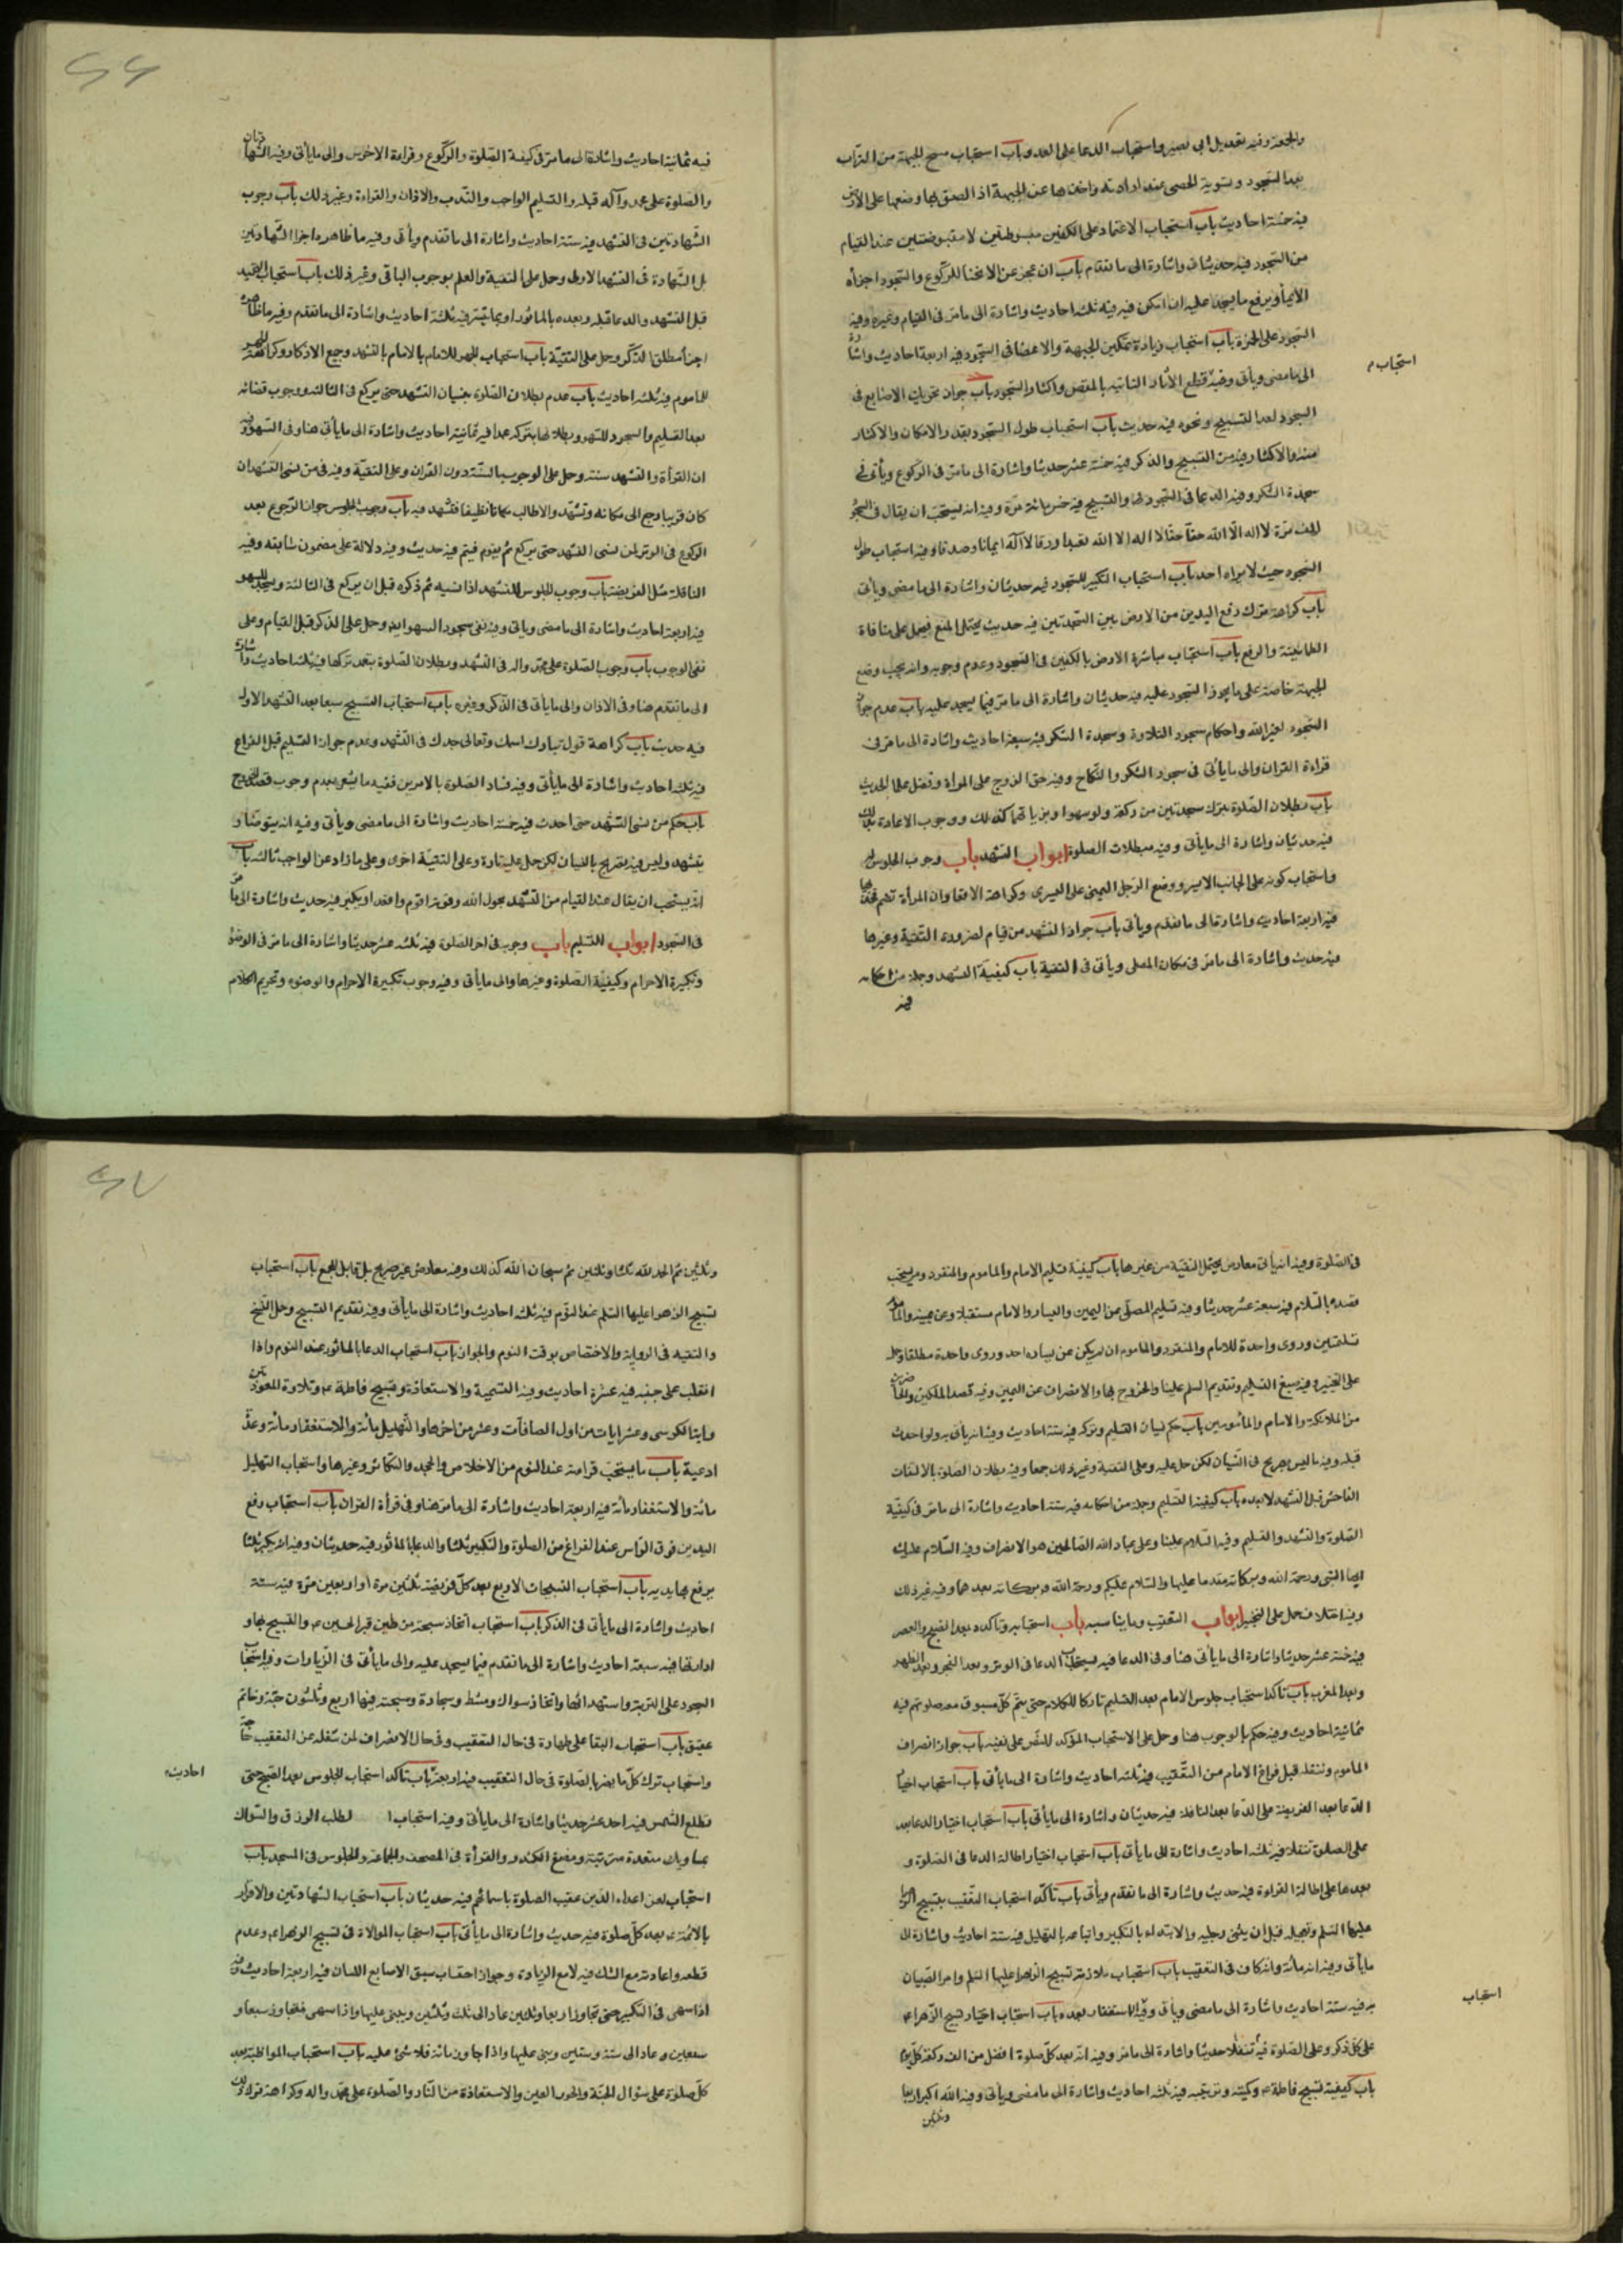 والجمعة وفيه تعديل ابى بصير واستحباب الدعا على العدو باب استحباب مسح الجبهة من التراب
بعد السجود وتسوية الحصى عند ارادته واخذها عن الجبهة اذا الصق بها ووضعها على الارض
فيه خمسة احاديث باب استحباب الاعتماد على الكفين مبسوطتين لا مقبوضتين عند القيام
من السجود فيه حديثان واشارة الى ما تقدم باب ان عجز عن الانحنا للركوع والسجود اجزأه
الايماء ويرفع ما يسجد عليه ان امكن فيه ثلثة احاديث واشارة الى ما مر فى القيام وغيره وفيه
السجود على الخمرة باب استحباب زيادة تمكين الجبهة والاعضا فى السجود فيه اربعة احاديث واشارة
استحباب
الى ما مضى ويأتى وفيه قطع الآثار الثانيه بالمقص واكثار السجود باب جواز تحريك الاصابع فى
السجود لعد التسبيح ونحوه فيه حديث باب استحباب طول السجود بقدر الامكان والاكثار
منه والاكثار فيه من التسبيح والذكر فيه خمسة عشر حديثا واشارة الى ما مر فى الركوع ويأتى فى
سجدة الشكر وفيه الدعا فى السجود والتسبيح فيه خمسمائة مرة وفيه انه يستحب ان يقال فى السجود
الف مرة لا اله الا الله حقا حقا لا اله الا الله تعبدا ورقا لا اله ايمانا وصدقا وفيه استحباب طول
السجود حيث لا يراه احد باب استحباب التكبير للسجود فيه حديثان واشارة الى ما مضى ويأتى
باب كراهة ترك رفع اليدين من الارض بين السجدتين فيه حديث يحتمل المنع فيحمل على منافاة
الطمانينة والرفع باب استحباب مباشرة الارض بالكفين فى السجود وعدم وجوبه وانه يجب وضع
الجبهة خاصة على ما يجوز السجود عليه فيه حديثان واشارة الى ما مر فيما يسجد عليه باب عدم جواز
السجود لغير الله واحكام سجود التلاوة وسجدة الشكر فيه سبعة احاديث واشارة الى ما مر فى
قراءة القران والى ما يأتى فى سجود الشكر والنكاح وفيه حق الزوج على المراة وفضل علما الحديث
باب بطلان الصلوة بترك سجدتين من ركعة ولو سهوا وبزيادتهما كذلك ووجوب الاعادة بذلك
فيه حديثان واشارة الى ما يأتى وفيه مبطلات الصلوة ابواب التشهد باب وجوب الجلوس له
واستحباب كونه على الجانب الايسر ووضع الرجل اليمنى على اليسرى وكراهة الاقعا وان المرأة تضم فخذيها
فيه اربعة احاديث واشارة الى ما تقدم ويأتى باب جواز التشهد من قيام لضرورة التقية وغيرها
فيه حديث واشارة الى ما مر فى مكان المصلى ويأتى فى التقية باب كيفية التشهد وجملة من احكامه
فيه
فيه ثمانية احاديث واشارة الى ما مر فى كيفية الصلوة والركوع وقراءة الاخرس والى ما يأتى وفيه الشهادتان
والصلوة على محمد وآله قبله والتسليم الواجب والندب والاذان والقراءة وغير ذلك باب وجوب
الشهادتين فى التشهد فيه ستة احاديث واشارة الى ما تقدم ويأتى وفيه ما ظاهره اجزا الشهادتين
بل الشهادة فى التشهد الاول وحمل على التقية والعلم بوجوب الباقى وغير ذلك باب استحباب التحميد
قبل التشهد والدعا قبله وبعده بالماثور او بما تيسر فيه ثلثة احاديث واشارة الى ما تقدم وفيه ما ظاهره
اجزأ مطلق الذكر وحمل على التقية باب استحباب الجهر للامام بالتشهد وجميع الاذكار وكراهة الجهر
للماموم فيه ثلثة احاديث باب عدم بطلان الصلوة بنسيان التشهد حتى يركع فى الثالثه ووجوب قضائه
بعد التسليم والسجود للسهو وبطلانها بتركه عمدا فيه ثمانية احاديث واشارة الى ما يأتى هنا وفى السهو وفيه
ان القرأة والتشهد سنة وحمل على الوجوب بالسنة دون القران وعلى التقية وفيه فى من نسى التشهد ان
كان قريبا رجع الى مكانه وتشهد والا طلب مكانا نظيفا فتشهد فيه باب وجوب الجلوس جواز الرجوع بعد
الركوع فى الوتر لمن نسى التشهد حتى يركع ثم يقوم فيتم فيه حديث وفيه دلالة على مضمون سابقه وفيه
النافلة مثل الفريضة باب وجوب الجلوس للتشهد اذا نسيه ثم ذكره قبل ان يركع فى الثالثة ويسجد للسهو
فيه اربعة احاديث واشارة الى ما مضى وياتى وفيه نفى سجود السهو فيه وحمل على الذكر قبل القيام وعلى
نفى الوجوب باب وجوب الصلوة على محمد واله فى التشهد وبطلان الصلوة بتعمد تركها فيه ثلثة احاديث واشارة
الى ما تقدم هنا وفى الاذان والى ما يأتى فى الذكر وغيره باب استحباب التسبيح سبعا بعد التشهد الاول
فيه حديث باب كراهة قول تبارك اسمك وتعالى جدك فى التشهد وعدم جواز التسليم قبل الفراغ
فيه ثلثة احاديث واشارة الى ما يأتى وفيه فساد الصلوة بالامرين ففيه ما يشعر بعدم وجوب قصد الخروج
باب حكم من نسى التشهد حتى احدث فيه خمسة احاديث واشارة الى ما مضى ويأتى وفيه انه يتوضأ و
يتشهد وليس فيه تصريح بالنسيان لكن حمل عليه تارة وعلى التقية اخرى وعلى ما زاد عن الواجب ثالثه باب
انه يستحب ان يقال عند القيام من التشهد بحول الله وقوته اقوم واقعد او يكبر فيه حديث واشارة الى ما مر
فى السجود ابواب التسليم باب وجوبه فى اخر الصلوة فيه ثلثة عشر حديثا واشارة الى ما مر فى الوضوء
وتكبيرة الاحرام وكيفية الصلوة وغيرها والى ما يأتى وفيه وجوب تكبيرة الاحرام والوضوء وتحريم الكلام
فى الصلوة وفيه انه يأتى معارض يحتمل التقية من غيرها باب كيفية تسليم الامام والماموم والمنفرد ومن يستحب
قصده بالسلام فيه سبعة عشر حديثا وفيه تسليم المصلى عن اليمين واليسار والامام مستقبلا وعن يمينه والماموم
تسلمتين وروى واحدة للامام والمنفرد والماموم ان لم يكن عن يساره احد وروى واحدة مطلقا وحمل
على التخيير وفيه صيغ التسليم وتقديم السلم علينا والخروج بها والانصراف عن اليمين وفيه قصد الملكين والحاضرين
من الملائكة والامام والمأمومين باب حكم نسيان التسليم وتركه فيه ستة احاديث وفيه انه يأتى به ولو احدث
قبله وفيه ما ليس بصريح فى النسيان لكن حمل عليه وعلى التقية وغير ذلك جمعا وفيه بطلان الصلوة بالالتفات
الفاحش قبل التشهد لا بعده باب كيفية التسليم وجملة من احكامه فيه ستة احاديث واشارة الى ما مر فى كيفية
الصلوة والتشهد والتسليم وفيه السلام علينا وعلى عباد الله الصالحين هو الانصراف وفيه السلام عليك
ايها النبى ورحمة الله وبركاته مقدما عليها والسلام عليكم ورحمة الله وبركاته بعدهما وفيه غير ذلك
وفيه اختلاف حمل على التخيير ابواب التعقيب وما يناسبه باب استحبابه وتاكده بعد الصبح والعصر
فيه خمسة عشر حديثا واشارة الى ما يأتى هنا وفى الدعا فيه يستجاب الدعا فى الوتر وبعد الفجر وبعد الظهر
وبعد المغرب باب تاكد استحباب جلوس الامام بعد التسليم تاركا للكلام حتى يتم كل مسبوق معه صلوته فيه
ثمانية احاديث وفيه حكم بالوجوب هنا وحمل على الاستحباب المؤكد للنص على نفيه باب جواز انصراف
الماموم وتنفله قبل فراغ الامام من التعقيب فيه ثلثة احاديث واشارة الى ما يأتى باب استحباب اختيار
الدعا بعد الفريضة على الدعا بعد النافلة فيه حديثان واشارة الى ما يأتى باب استحباب اختيار الدعا بعد
على الصلوة تنفلا فيه ثلثة احاديث واشارة الى ما يأتى باب استحباب اختيار اطالة الدعا فى الصلوة و
بعدها على اطالة القراءة فيه حديث واشارة الى ما تقدم ويأتى باب تأكد استحباب التعقيب بتسبيح الزهرا
عليها السلم وتعجيله قبل ان يثنى رجليه والابتداء بالتكبير واتباعه بالتهليل فيه ستة احاديث واشارة الى
ما يأتى وفيه انه مائة وانه كاف فى التعقيب باب استحباب ملازمة تسبيح الزهرا عليها السلم وامر الصبيان
به فيه ستة احاديث واشارة الى ما مضى ويأتى وفيه الاستغفار بعده باب استحباب اختيار تسبيح الزهراء ع
استحباب
على كل ذكر وعلى الصلوة تنفلا فيه حديثا واشارة الى ما مر وفيه انه بعد كل صلوة افضل من الف ركعة كل يوم
باب كيفية تسبيح فاطمة ع وكميته وترتيبه فيه ثلثة احاديث واشارة الى ما مضى ويأتى وفيه الله اكبر اربعا
وثلثين
وثلثين ثم الحمد لله ثلثا وثلثين ثم سبحان الله كذلك وفيه معارض غير صريح بل قابل للجمع باب استحباب
تسبيح الزهرا عليها السلم عند النوم فيه ثلثة احاديث واشارة الى ما يأتى وفيه تقديم التسبيح وحمل النسخ
والتقيه فى الرواية والاختصاص بوقت النوم والجواز باب استحباب الدعا بالماثور عند النوم واذا
انقلب على جنبه فيه عشرة احاديث وفيه التسمية والاستعاذة وتسبيح فاطمة ع وتلاوة المعوذتين
واية الكرسى وعشر ايات من اول الصافات وعشر من اخرها والتهليل مائة والاستغفار مائة وعدة
ادعية باب ما يستحب قراءته عند النوم من الاخلاص والجحد والتكاثر وغيرها واستحباب التهليل
مائة والاستغفار مائة فيه اربعة احاديث واشارة الى ما مر هنا وفى قرأة القران باب استحباب رفع
اليدين فوق الراس عند الفراغ من الصلوة والتكبير ثلثا والدعا بالماثور فيه حديثان وفيه الامر يكبر ثلثا
يرفع بها يديه باب استحباب التسبيحات الاربع بعد كل فريضة ثلثين مرة او اربعين مرة فيه ستة
احاديث واشارة الى ما يأتى فى الذكر باب استحباب اتخاذ سبحة من طين قبر الحسين ع والتسبيح بها و
ادارتها فيه سبعة احاديث واشارة الى ما تقدم فيما يسجد عليه والى ما يأتى فى الزيارات وفيه استحباب
السجود على التربة واستهدائها واتخاذ سواك ومشط وسجادة وسبحة فيها اربع وثلثون حبة وخاتم
عقيق باب استحباب البقا على طهارة فى حال التعقيب وفى حال الانصراف لمن شغله عن التعقيب حاجة
واستحباب ترك كل ما يضر بالصلوة فى حال التعقيب فيه اربعة باب تاكد استحباب الجلوس بعد الصبح حتى
احاديث
تطلع الشمس فيه احد عشر حديثا واشارة الى ما يأتى وفيه استحباب ا لطلب الرزق والسواك
بمساويك متعددة مترتبة ومضغ الكندر والقرأة فى المصحف والحجامة والجلوس فى المسجد باب
استحباب لعن اعداء الدين عقيب الصلوة باسمائهم فيه حديثان باب استحباب الشهادتين والاقرار
بالائمة ع بعد كل صلوة فيه حديث واشارة الى ما يأتى باب استحباب الموالاة فى تسبيح الزهراء ع وعدم
قطعه واعادته مع الشك فيه لا مع الزيادة وجواز احتساب سبق الاصابع اللسان فيه اربعة احاديث وفيه
اذا سهى فى التكبير حتى تجاوز اربعا وثلثين عاد الى ثلث وثلثين ويبنى عليها واذا سهى فتجاوز سبعا و
ستين عاد الى ستة وستين وبنى عليها واذا جاوز مائة فلا شئ عليه باب استحباب المواظبة بعد
كل صلوة على سؤال الجنة والحور العين والاستعاذة من النار والصلوة على محمد واله وكراهة ترك ذلك